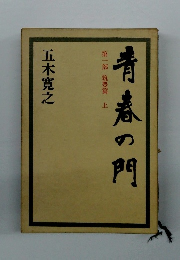 青春の門
第一部 筑豊篇 上
五木寛之